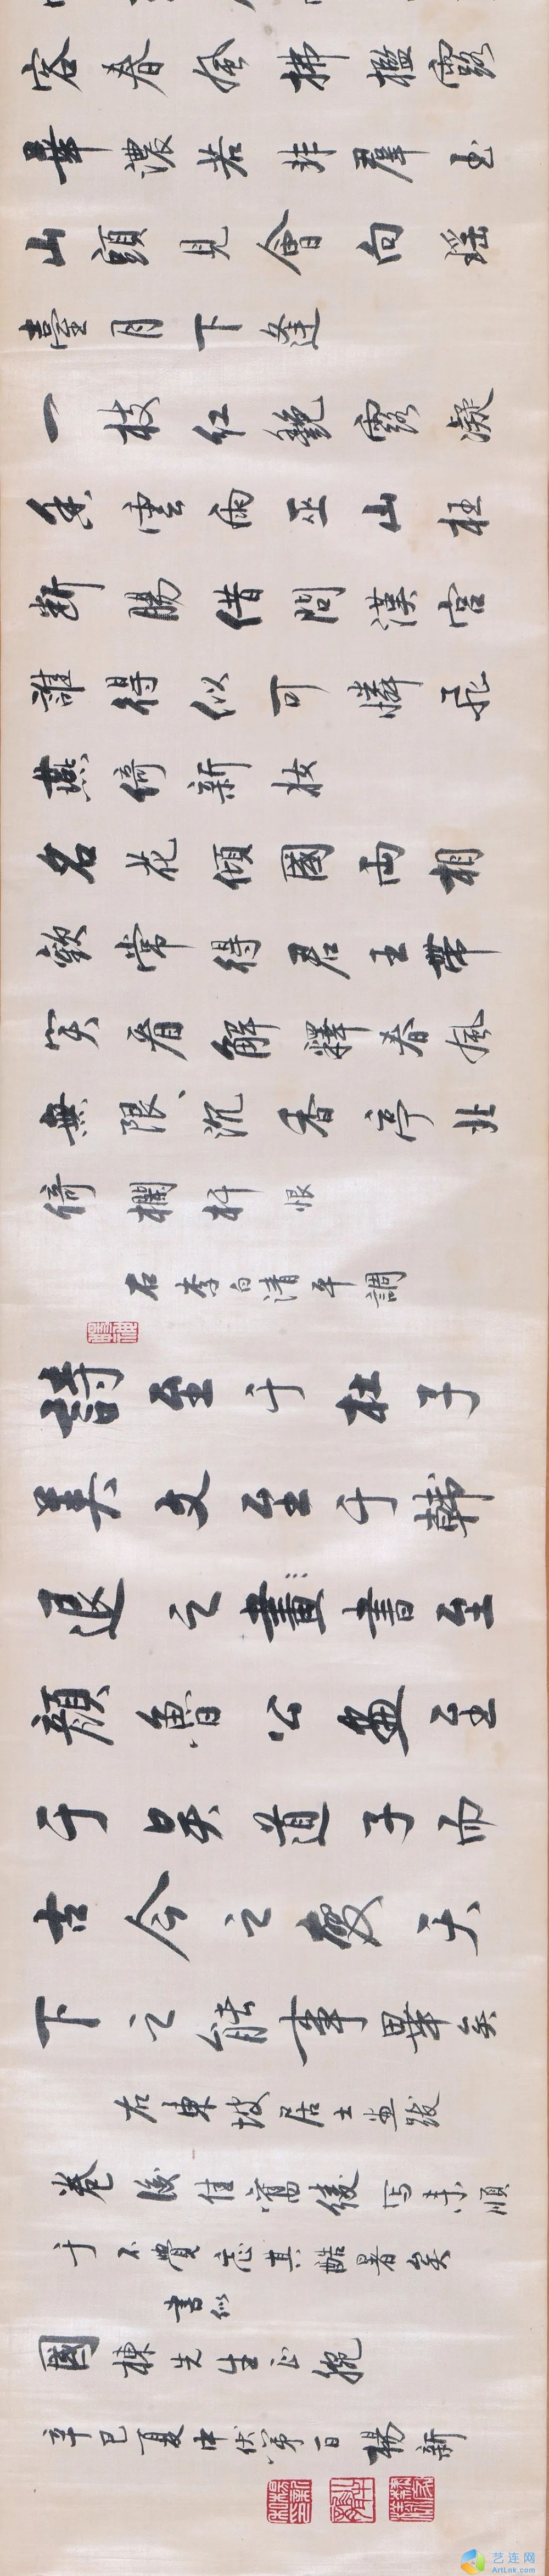 容春風拂檻露
華濃若非群玉
山頭見會向瑶
臺月下逢
一枝紅艷露凝
香雲雨巫山枉
斷腸借問漢宮
誰得似可憐飛
燕倚新妝
名花傾國両相
歡常得君王帶
笑看解釋春風
無限沉香亭北
倚欄杆 恨
右李白清平調
詩至于杜子
美文至于韓
退之畫書至
顔魯公畫至
于吳道子而
古今之變天
下之能事畢矣
右東坡居士畫跋
卷後佳舊綾寫來順
手不覺忘其酷暑矣
書似
國棟先生正腕
辛巳夏中伏第一日楊新
艺连网
ArtLnk.com